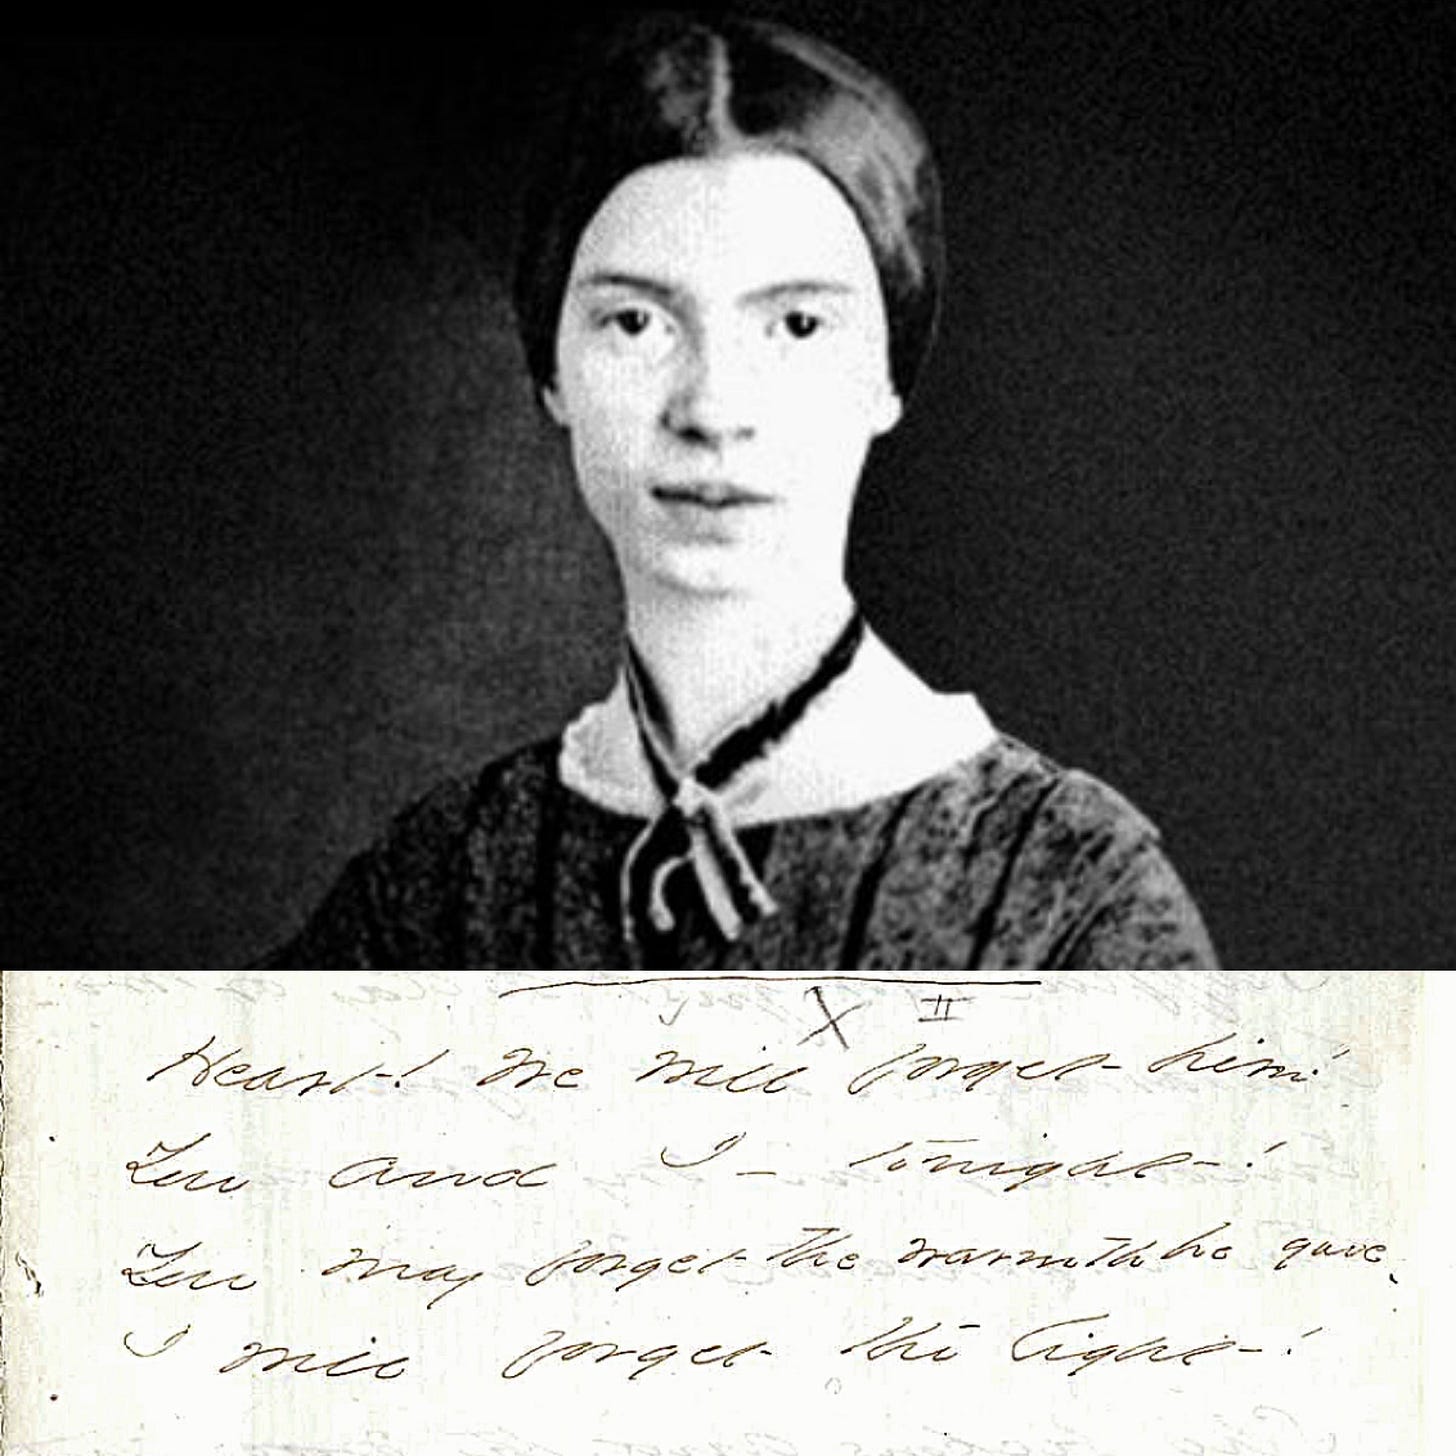 X II
Heart! We will forget him!
You and I – tonight!
You may forget the warmth he gave,
I will forget the light!